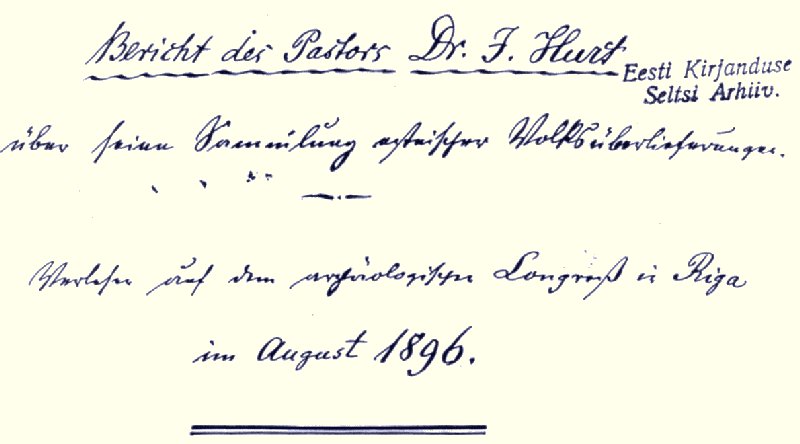 Bericht des Pastors Dr. J. Hurt
Eesti Kirjanduse
Seltsi Arhiiv.
über seine Sammlung estnischer Volksüberlieferungen.
Verlesen auf dem archäologischen Congreß in Riga
im August 1896.